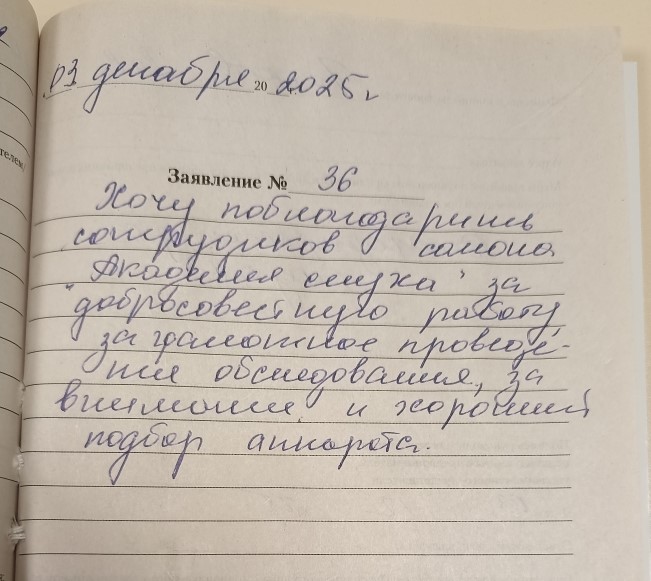 03 декабря 20 2025г
Заявление № 36
Хочу поблагодарить
сотрудников салона
"Академия слуха" за
добросовестную работу
за грамотное проведе-
ние обследования, за
внимание и хороший
подбор аппарата.
телем